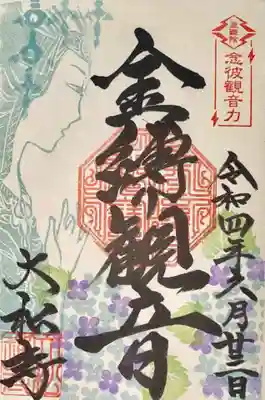 念彼観音力
金縛り観音
令和四年六月廿二日
大松寺